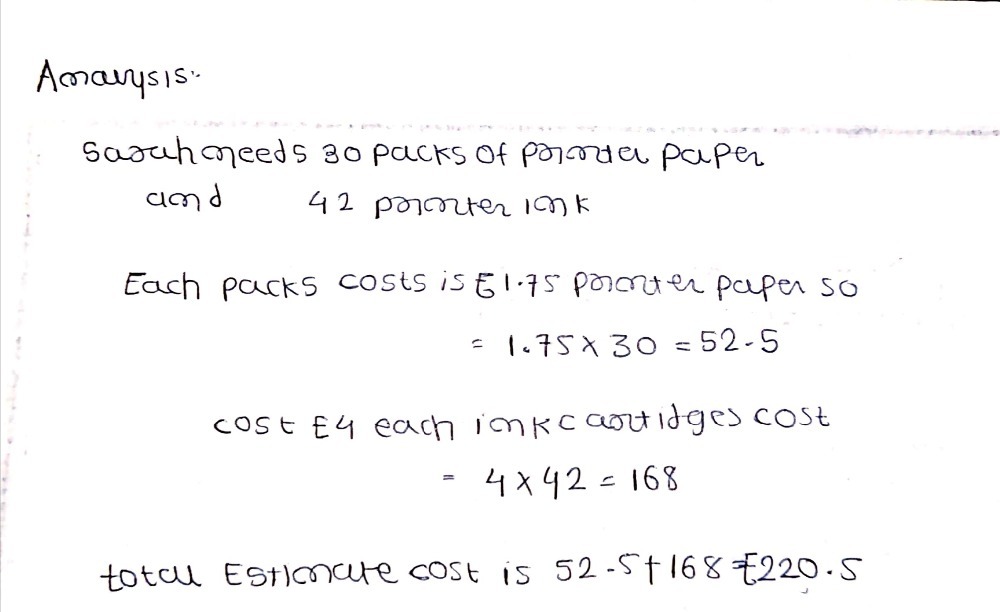 Analysis:-
Sarah needs 30 packs of printer paper
and 42 printer ink
Each packs costs is £1.75 printer paper so
= 1.75 x 30 = 52.5
cost £4 each ink cartidges cost
= 4 x 42 = 168
total Estimate cost is 52.5 + 168 = £220.5